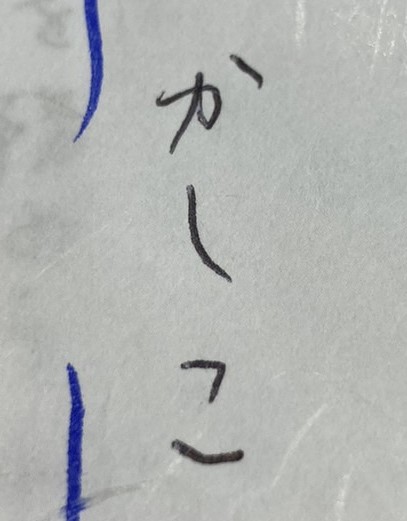 かしこ